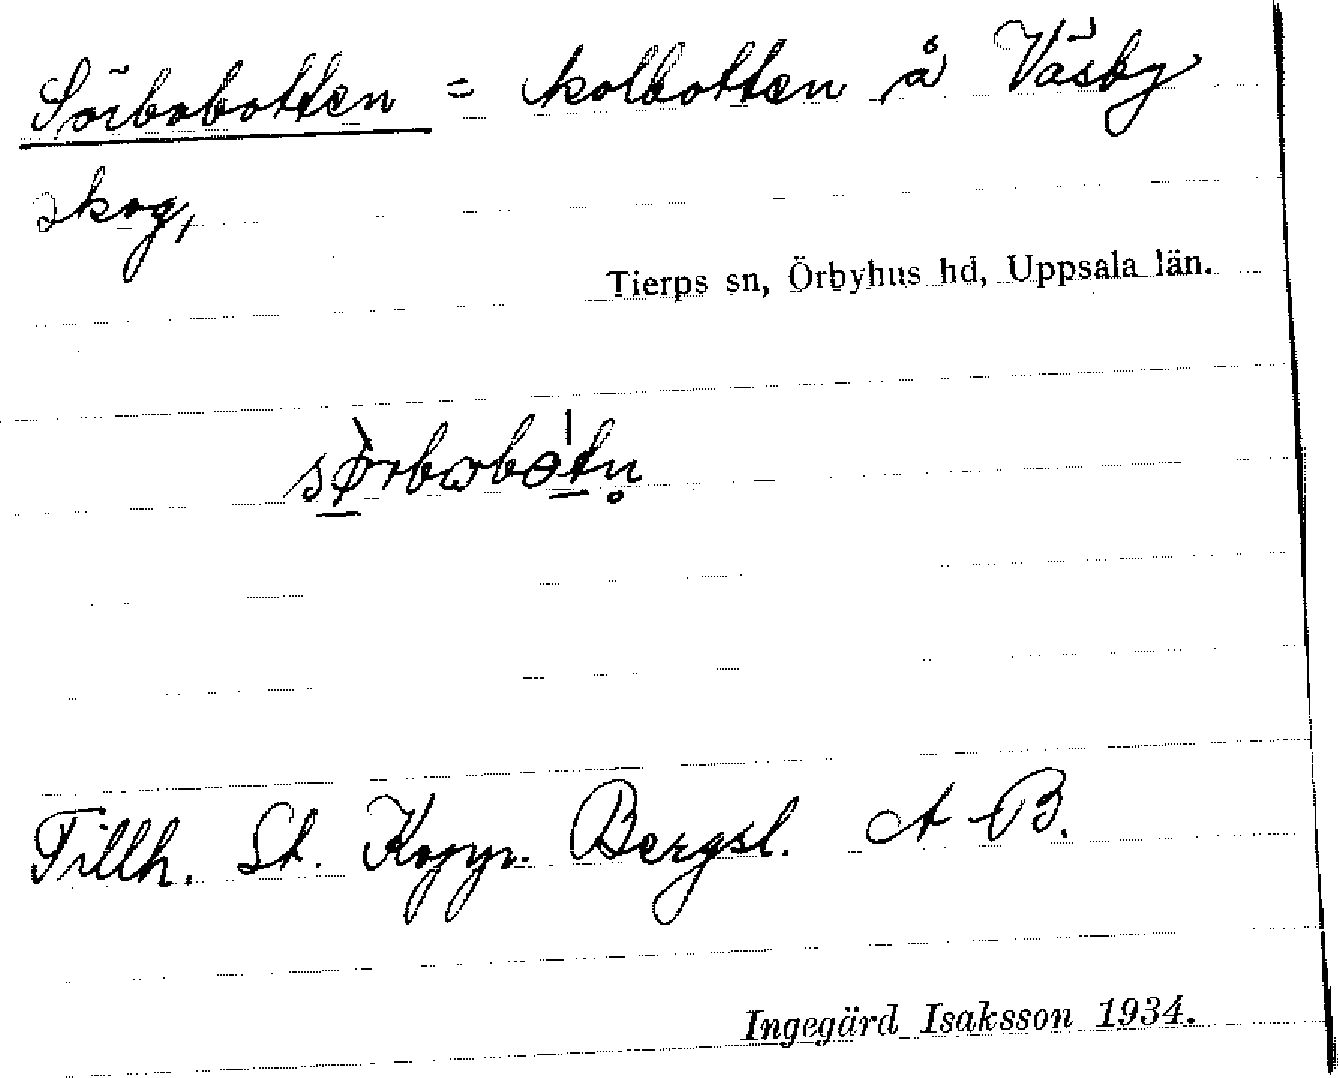 Sörbobotten = kolbotten å Väsby
skog,
Tierps sn, Örbyhus hd, Uppsala län.
Tillh. St. Kopp. Bergsl. A B.
Ingegärd Isaksson 1934.